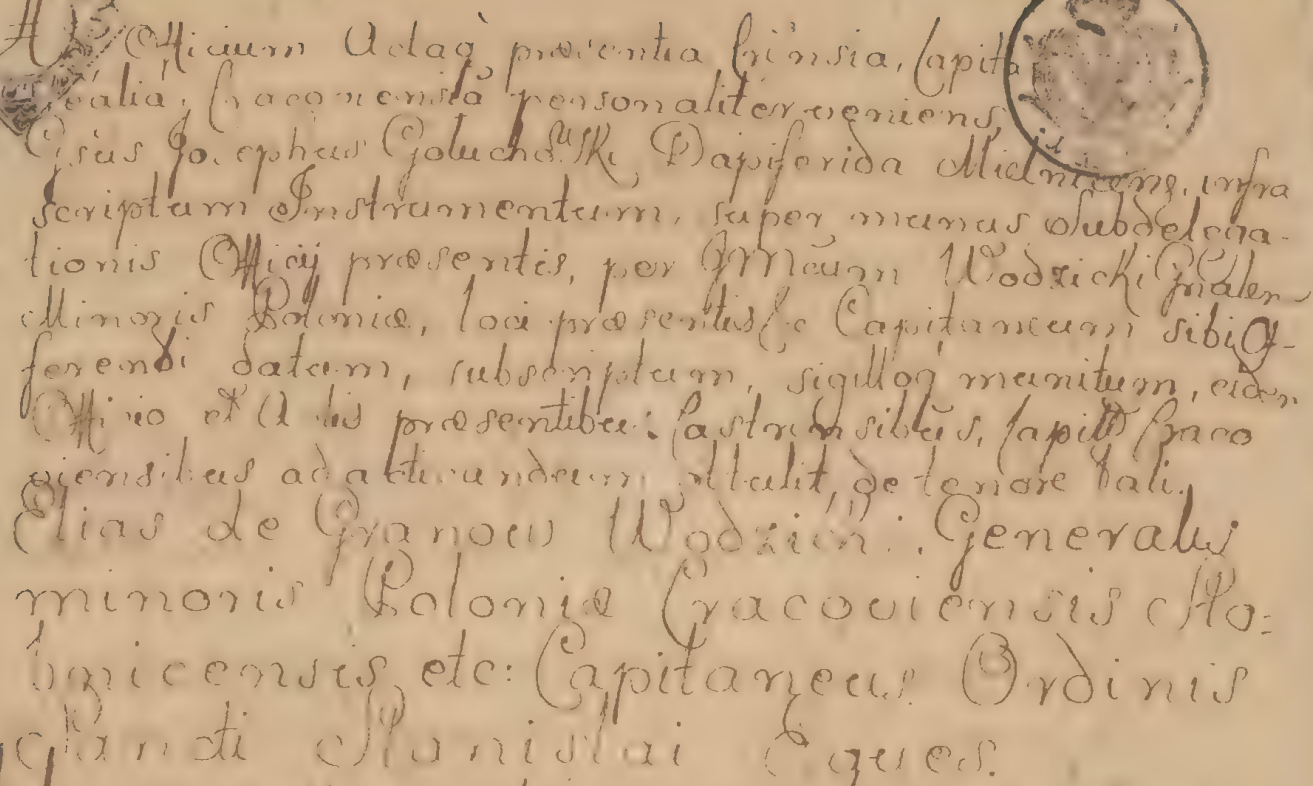 Ad Officium Actaq̀ præsentia Crinsia, Capita
nealia, Cracoviensia personaliter veniens,
Gsus Josephus Gołuchowski Dapiferida Mielnicens, infra
scriptum Instrumentum, super munus Subdelega-
tionis Officij præsentis, per Wodzicki Gnalem
Minoris Poloniæ, loci præsentis &c Capitaneum sibi of-
ferendi datum, subscriptum, sigilloq̀ munitum, eidem
Officio et Actis præsentibus Castrensibus, Capitt Craco
viensibus ad acticandum obtulit, de tenore tali.
Elias de Granow Wodzicki: Generalis
minoris Poloniæ Cracoviensis Sto:
bnicensis etc: Capitaneus Ordinis
Sancti Stanislai Eques.